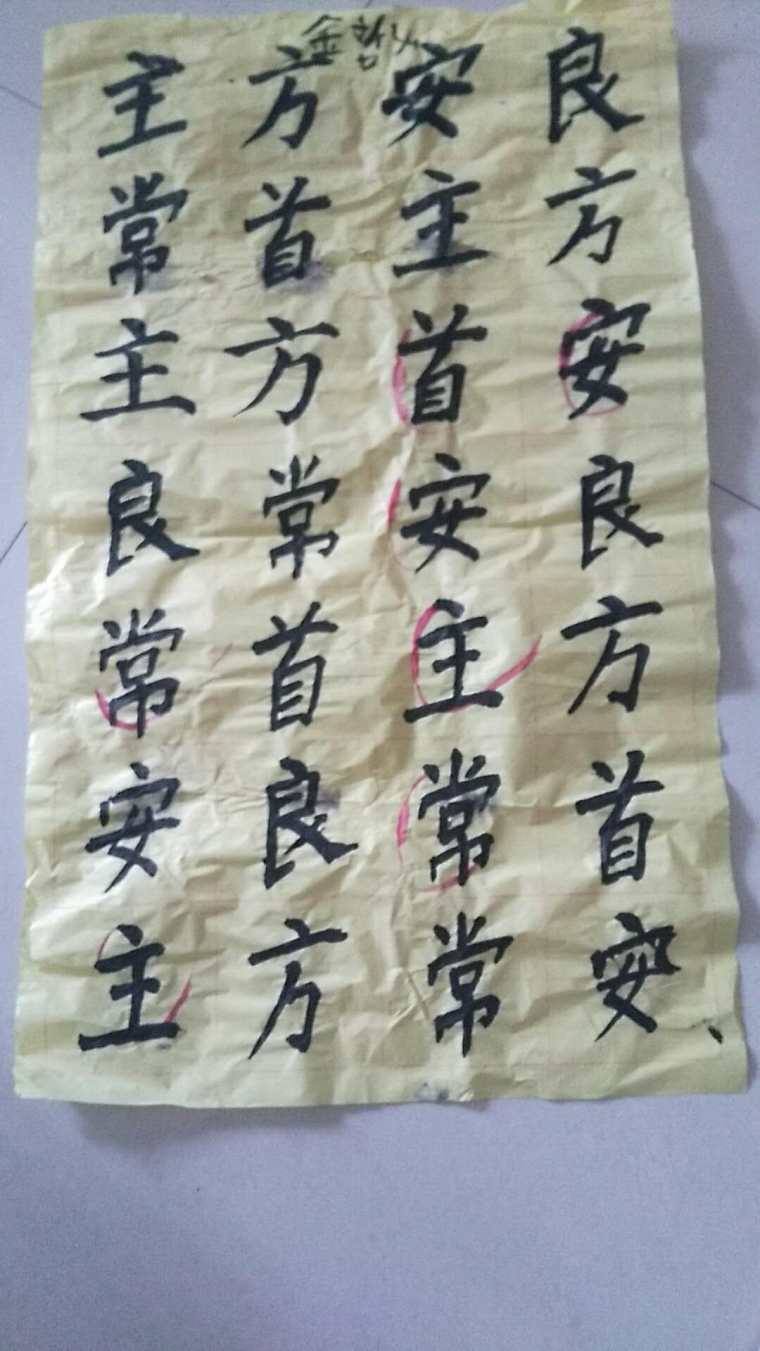 主方安良
常首主方
主方首安
良常安良
常首主方
安良常首
主方常安